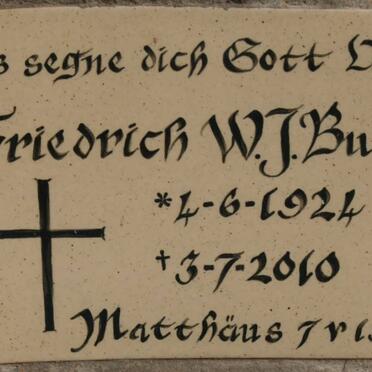 segne dich Gott
Friedrich W.J.
*4-6-1924
†3-7-2010
Matthäus 7 v